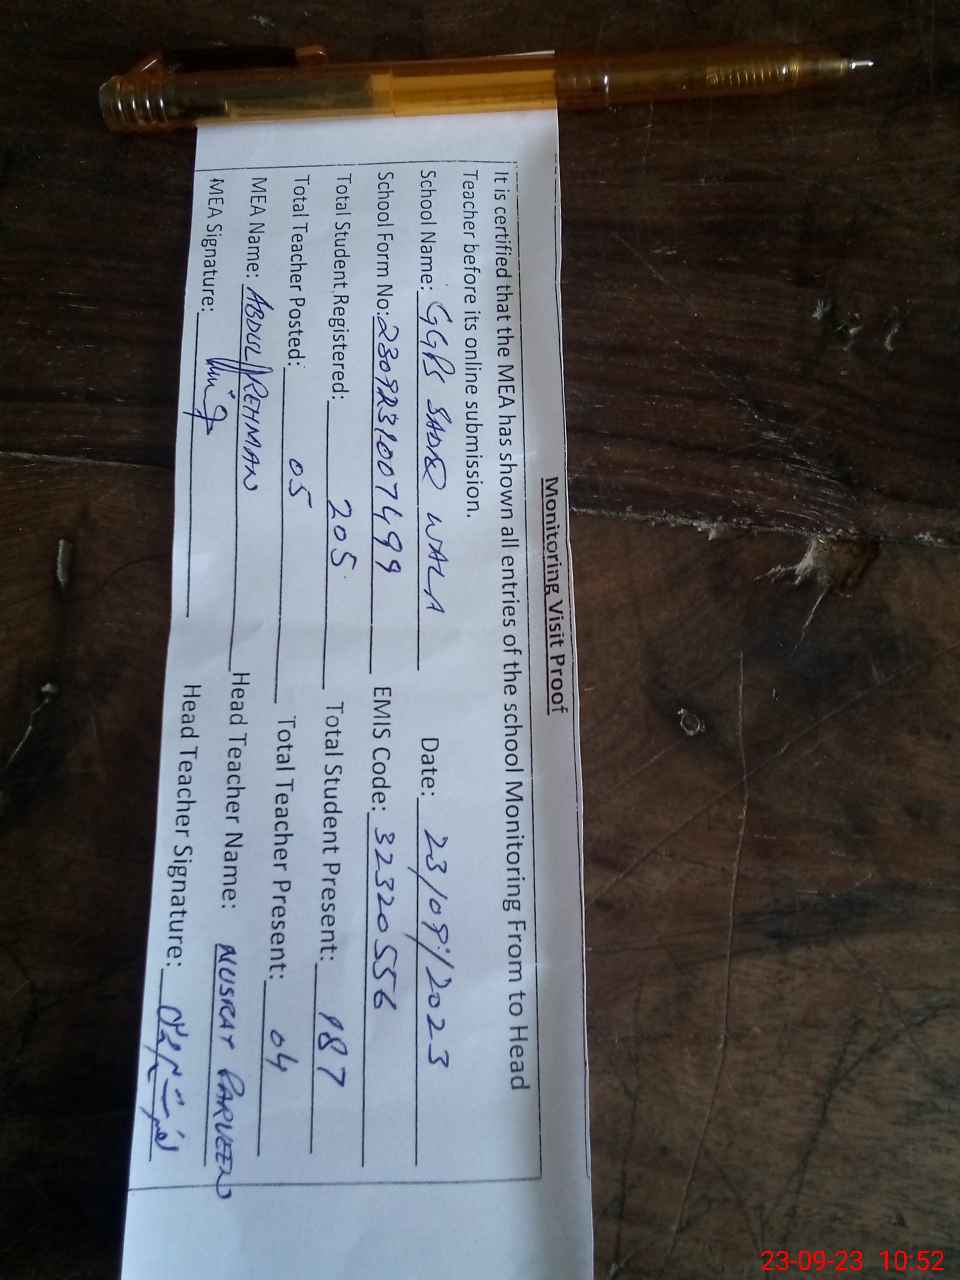 Monitoring Visit Proof
It is certified that the MEA has shown all entries of the school Monitoring From to Head
Teacher before its online submission.
School Name: GGPS SADIQ WALA Date: 23/09/2023
School Form No: 2309231007499 EMIS Code: 32320556
Total Student Registered: 205 Total Student Present: 187
Total Teacher Posted: 05 Total Teacher Present: 04
MEA Name: ABDUL REHMAN Head Teacher Name: NUSRAT PARVEEN
MEA Signature: Head Teacher Signature:
23-09-23 10:52